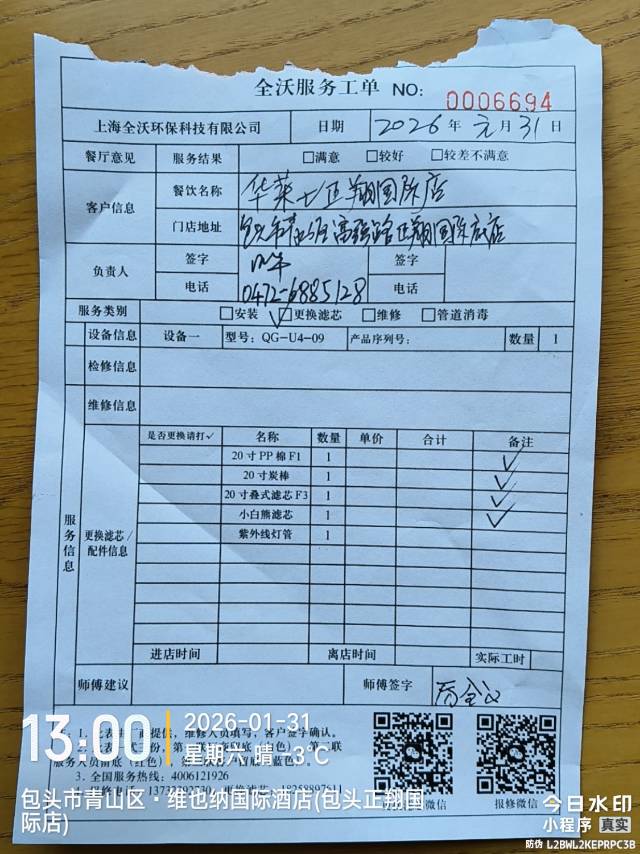 全沃服务工单 NO: 0006694
上海全沃环保科技有限公司 日期 2026年元月31日
餐厅意见 服务结果 □满意 □较好 □较差不满意
客户信息 餐饮名称 华莱士正翔国际店
门店地址 正翔国际底店
负责人 签字 签字
电话 0472-6885128 电话
服务类别 □安装 □更换滤芯 □维修 □管道消毒
设备信息 设备一 型号: QG-U4-09 产品序列号: 数量 1
检修信息
维修信息
服务信息 更换滤芯/配件信息
是否更换请打✓ 名称 数量 单价 合计 备注
20寸PP棉F1 1 ✓
20寸炭棒 1 ✓
20寸叠式滤芯F3 1 ✓
小白熊滤芯 1 ✓
紫外线灯管 1
进店时间 离店时间 实际工时
师傅建议 师傅签字
提供,维修人员填写,客户签字确认。
3.全国服务热线: 4006121926
报修微信
13:00 2026-01-31
星期六 晴 -3°C
包头市青山区·维也纳国际酒店(包头正翔国际店)
今日水印
小程序 真实
防伪 L2BWL2KEPRPC3B